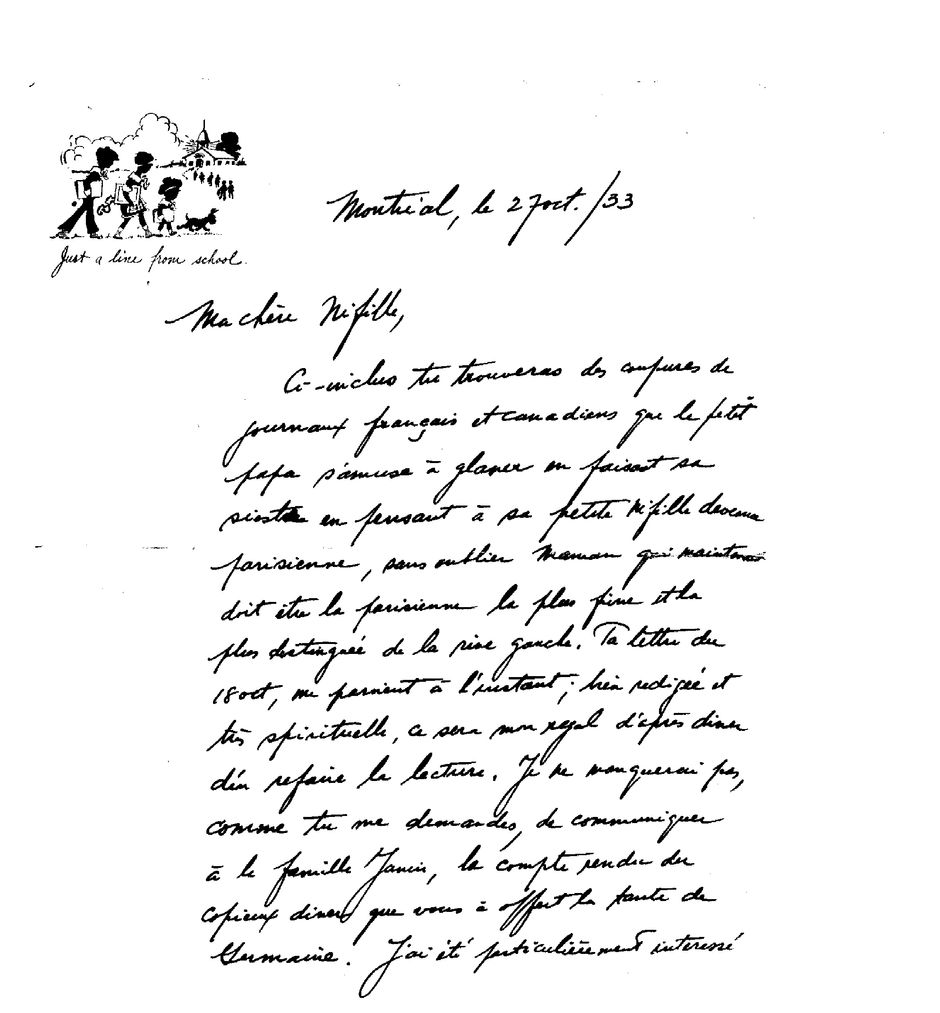 Montréal, le 27 oct. /33
Just a line from school.
Ma chère Nifille,
Ci-inclus tu trouveras des coupures de
journaux français et canadiens que le petit
papa s'amuse à glaner en faisant sa
sieste en pensant à sa petite Nifille devenue
parisienne, sans oublier Maman qui maintenant
doit être la parisienne la plus fine et la
plus distinguée de la rive gauche. Ta lettre du
18 oct, me parvient à l'instant; bien redigée et
très spirituelle, ce sera mon regal d'après diner
d'en refaire la lecture. Je ne manquerai pas,
comme tu me demandes, de communiquer
à la famille Janin, le compte rendu du
copieux diner que vous à offert la tante de
Germaine. J'ai été particulièrement interessé